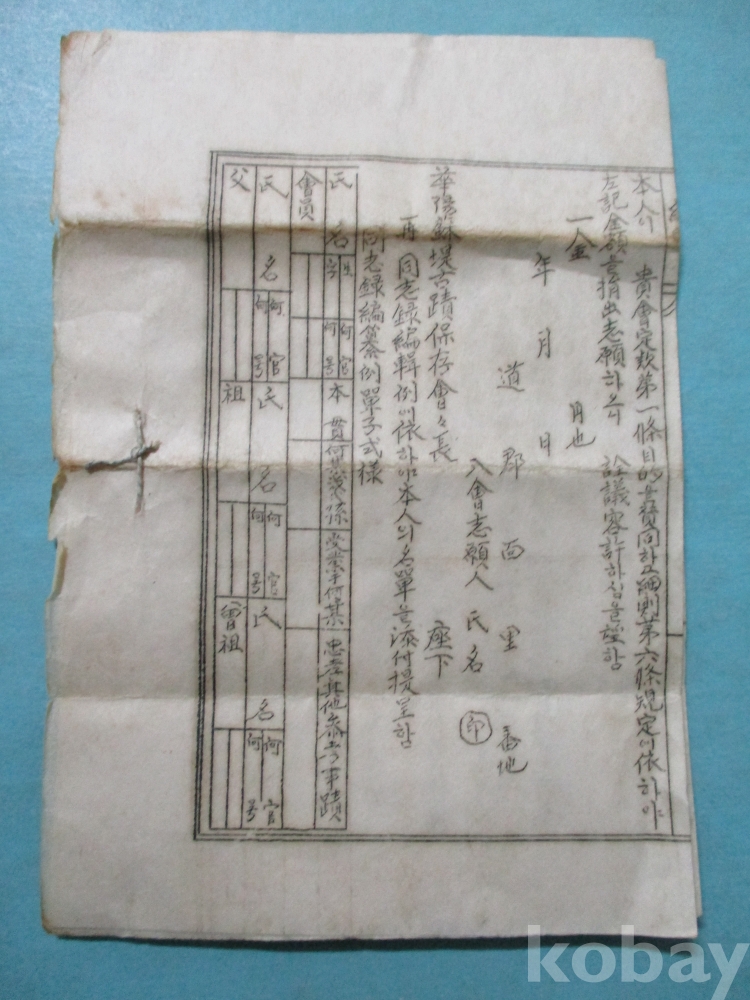 本人이 貴會定款第一條目的을 贊同하고 細則第六條規定에 依하야
左記金額을 捐出志願하오니 詮議容許하심을 望함
一金 円也
年 月 日
道 郡 面 里 番地
入會志願人 氏名 印
華陽蘇堤古蹟保存會々長 座下
再 同志錄編輯例에 依하야 本人의 名單을 添付提呈함
同志錄編纂例單子式樣
氏名 字 何官 何号 本貫何某後孫 受業于何某 忠孝其他參考事蹟
會員
氏名 何官 何号 氏名 何官 何号 氏名 何官 何号
父 祖 曾祖
kobay